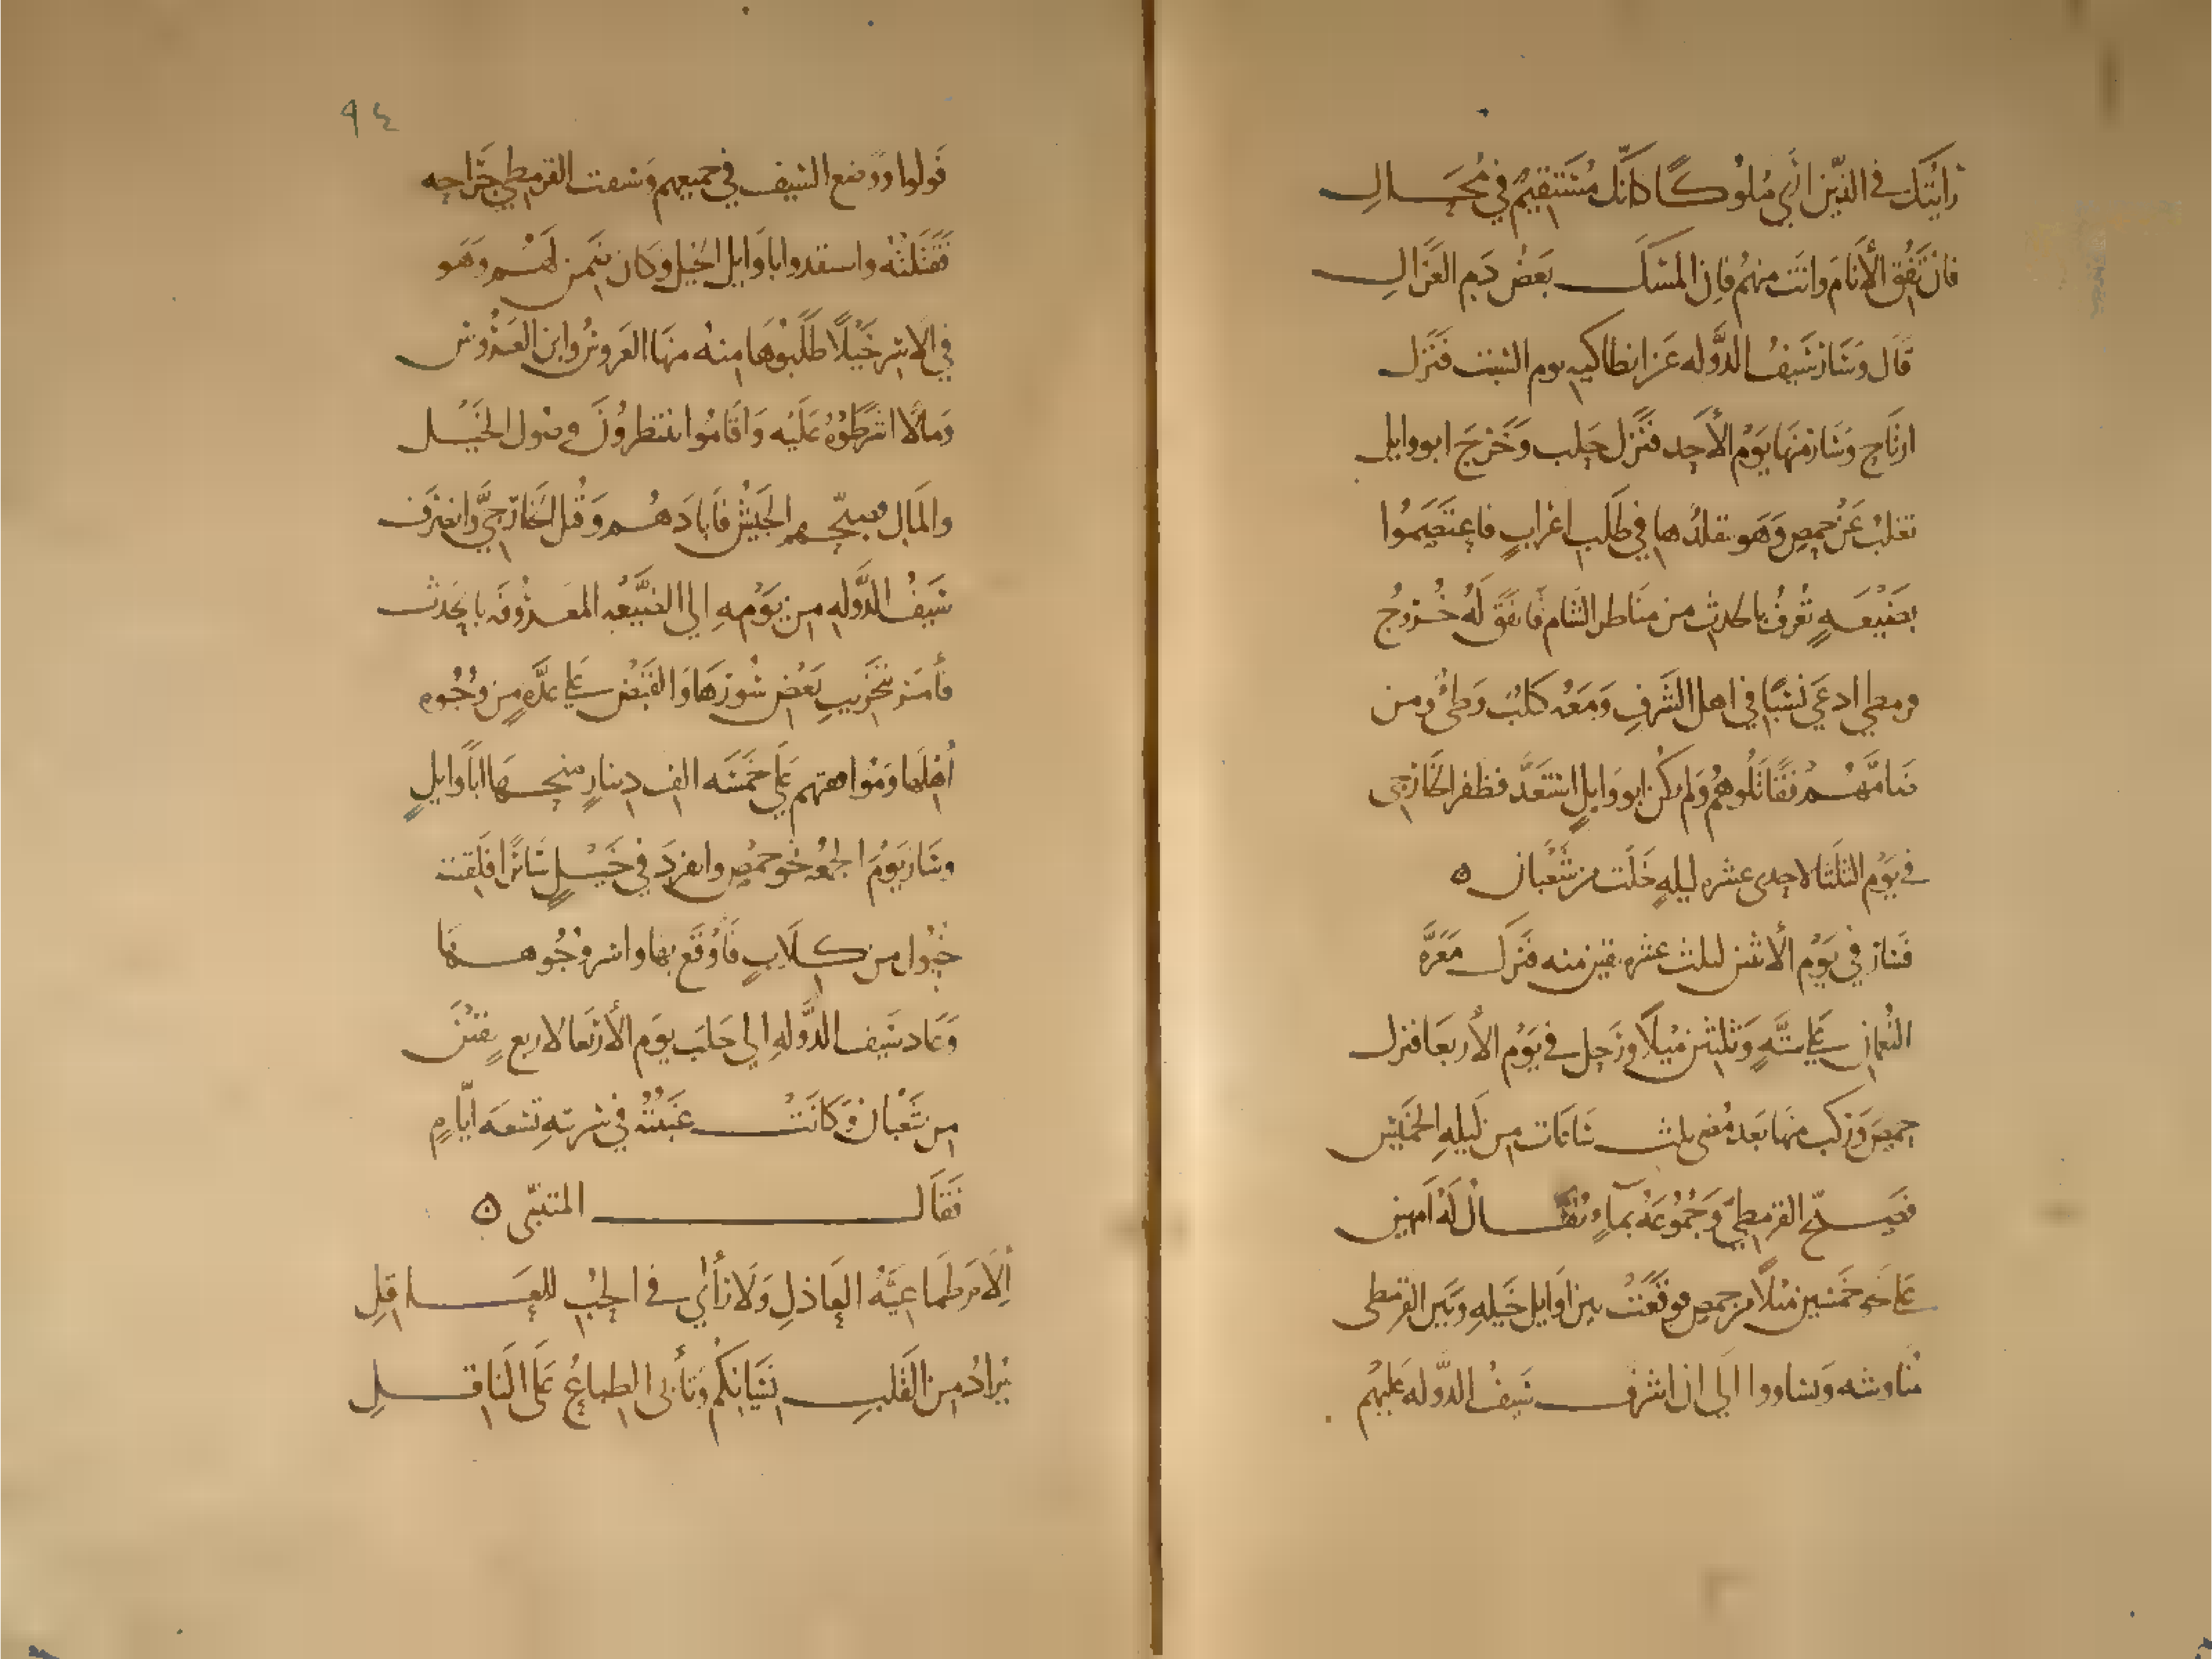 رايتك في الذين اري ملوكا كانك مستقيم في محال
فان تفق الأنام وانت منهم فان المسك بعض دم الغزال
قال وسار سيف الدوله عن انطاكيه يوم السبت فنزل
ارتاح وسار منها يوم الأحد فنزل حلب وخرج ابو وايل
تغلب عن حمص وهو يقلدها في طلب اعراب فاعتصموا
بضيعه تعرف بالحدث من مناظر الشام فاتفق له خروج
قرمطي ادعي نسبا في اهل الشرف ومعه كلب وطي ومن
ضامهم فقاتلوهم ولم يكن ابو وايل استعد فظفر الخارجي
في يوم الثلثا لاحدي عشره ليله خلت من شعبان ه
فسار في يوم الأثنين لثلث عشره بقين منه فنزل معره
النعمان علي سته وثلثين ميلا ورحل في يوم الأربعا فنزل
حمص وركب منها بعد مضي ثلث ساعات من ليله الخميس
فصبح القرمطي وجموعه بماء يقال له امهين
علي نحو خمسين ميلا من حمص فوقعت بين اوايل خيله وبين القرمطي
مناوشه وتشاوروا الي ان اشرف سيف الدوله عليهم
٩٤
فولوا ووضع السيف في جميعهم وسعت القرمطي جراحه
فقتلته واستقدوا ابا وايل الخيل وكان ضمن لهم وهو
في الاسر خيلا طلبوها منه منها العروس وابن العروس
ومالا اشرطوه عليه واقاموا ينتظرون وصول الخيل
والمال فصبحهم الجيش فابادهم وقتل الخارجي وانصرف
سيف الدوله من يومه الي الضيعه المعروفه بالحدث
فأمر بتخريب بعض سورها والقبض علي عده من وجوه
اهلها ومواهتهم علي خمسه الف دينار منحها ابا وايل
وسار يوم الجمعه نحو حمص وانفرد في خيل سايرا فلقيته
خيول من كلاب فأوقع بها واسر وجوهها
وعاد سيف الدوله الي حلب يوم الأربعا لاربع بقين
من شعبان وكانت غيبته في سريته تسعه ايام
فقال المتنبي ه
إلام طماعيه العاذل ولا رأي في الحب للعاقل
يراد من القلب نسيانكم وتأبي الطباع علي الناقل